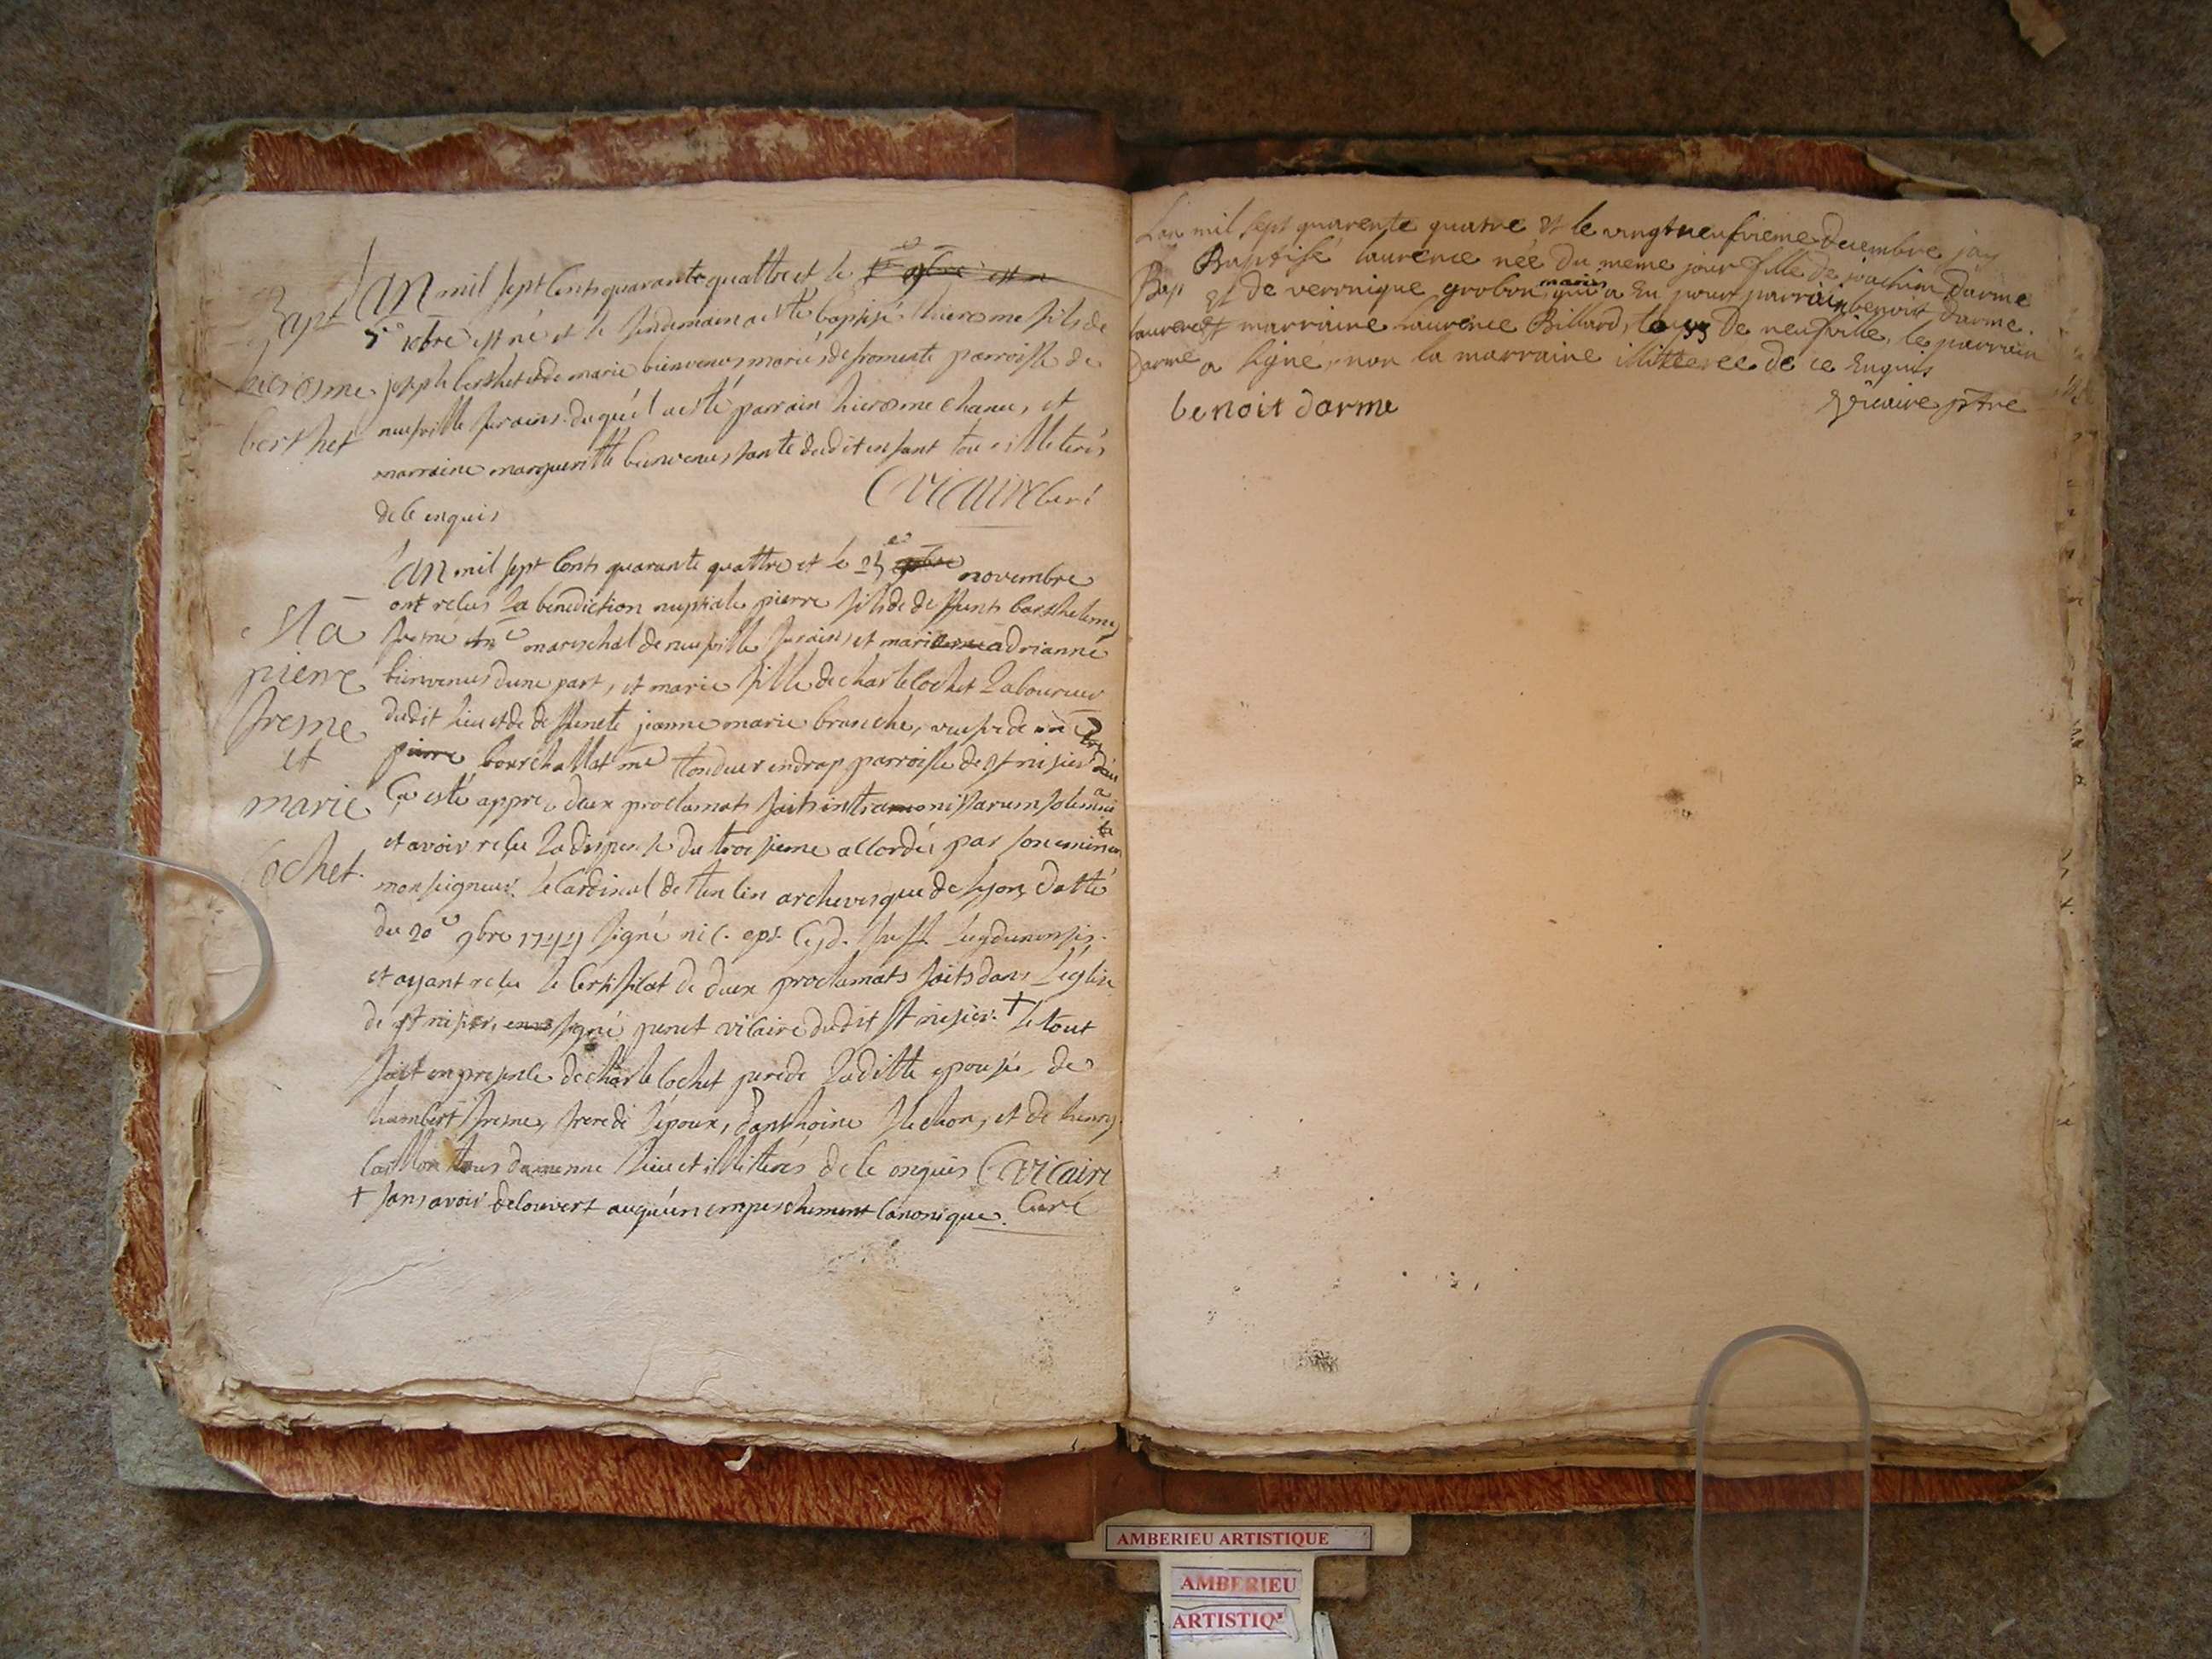 Lan mil sept cents quarante quattre et le
Bapt 5e 10bre est né et le lendemain a esté baptisé hierosme fils de
hierosme joseph berthet et de marie bienvenus mariés de fromente parroisse de
berthet neufville sur ains duquel a esté parrain hierosme chanu, et
marraine margueritte bienvenus tante dudit enfant tous illiterés
de ce enquis Cvicaire Curé
Lan mil sept Cents quarante quattre et le 25e novembre
ont receus La benediction nuptiale pierre fils de deffunt barthelemy
Sta freme mareschal de neufville sur ains, et mari adrianne
pierre bienvenus dune part, et marie fille de charle Cochet Laboureur
freme dudit lieu et de deffuncte jeanne marie branche, veufve de
et bourchallat me tondeur en drap parroisse de st nisier
marie Ca esté appre deux proclamats faits intra missarum solemnia
et avoir receu La dispense du troisieme accordée par son eminence
Cochet monseigneur le Cardinal de tencin archevesque de Lyon, datté
du 20e 9bre 1744 signé nic. eps. Cyd. suff. Lugdunensis.
et ayant receu le Certificat de deux proclamats faits dans Leglise
de st nisier, signé vicaire dudit st nisier. + le tout
fait en presence de charle Cochet pere de Laditte epousée de
humbert freme, frere de Lepoux, danthoine et de henry
tous du meme lieu et illiterés de ce enquis Cvicaire
+ sans avoir decouvert auqu'un empeschement Canonique. Curé
Lan mil sept quarente quatre et le vingt neufvieme decembre jay
Baptisé laurence née du meme jour fille de joachim darme
Bap et de veronique grobon mariés qui a Eu pour parrain benoit darme
laurence et marraine laurence Billard, tous de neufville, le parrain
darme a signé, non la marraine illitteree de ce Enquis
benoit darme vicaire ptre
AMBERIEU ARTISTIQUE
AMBERIEU
ARTISTIQ